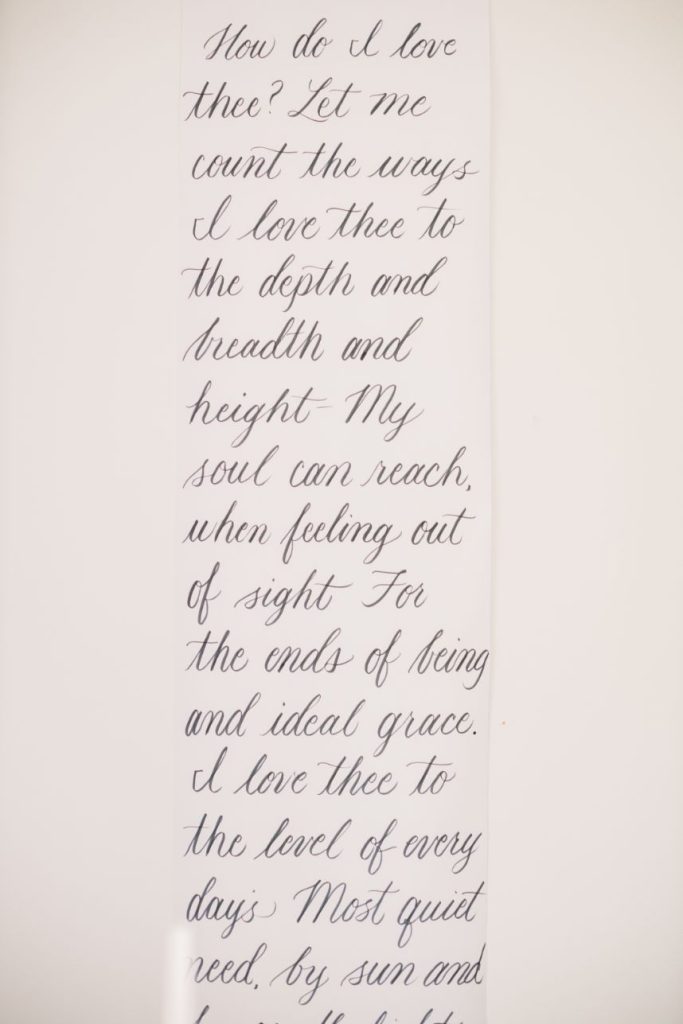 How do I love
thee? Let me
count the ways
I love thee to
the depth and
breadth and
height- My
soul can reach,
when feeling out
of sight For
the ends of being
and ideal grace.
I love thee to
the level of every
day's Most quiet
need, by sun and